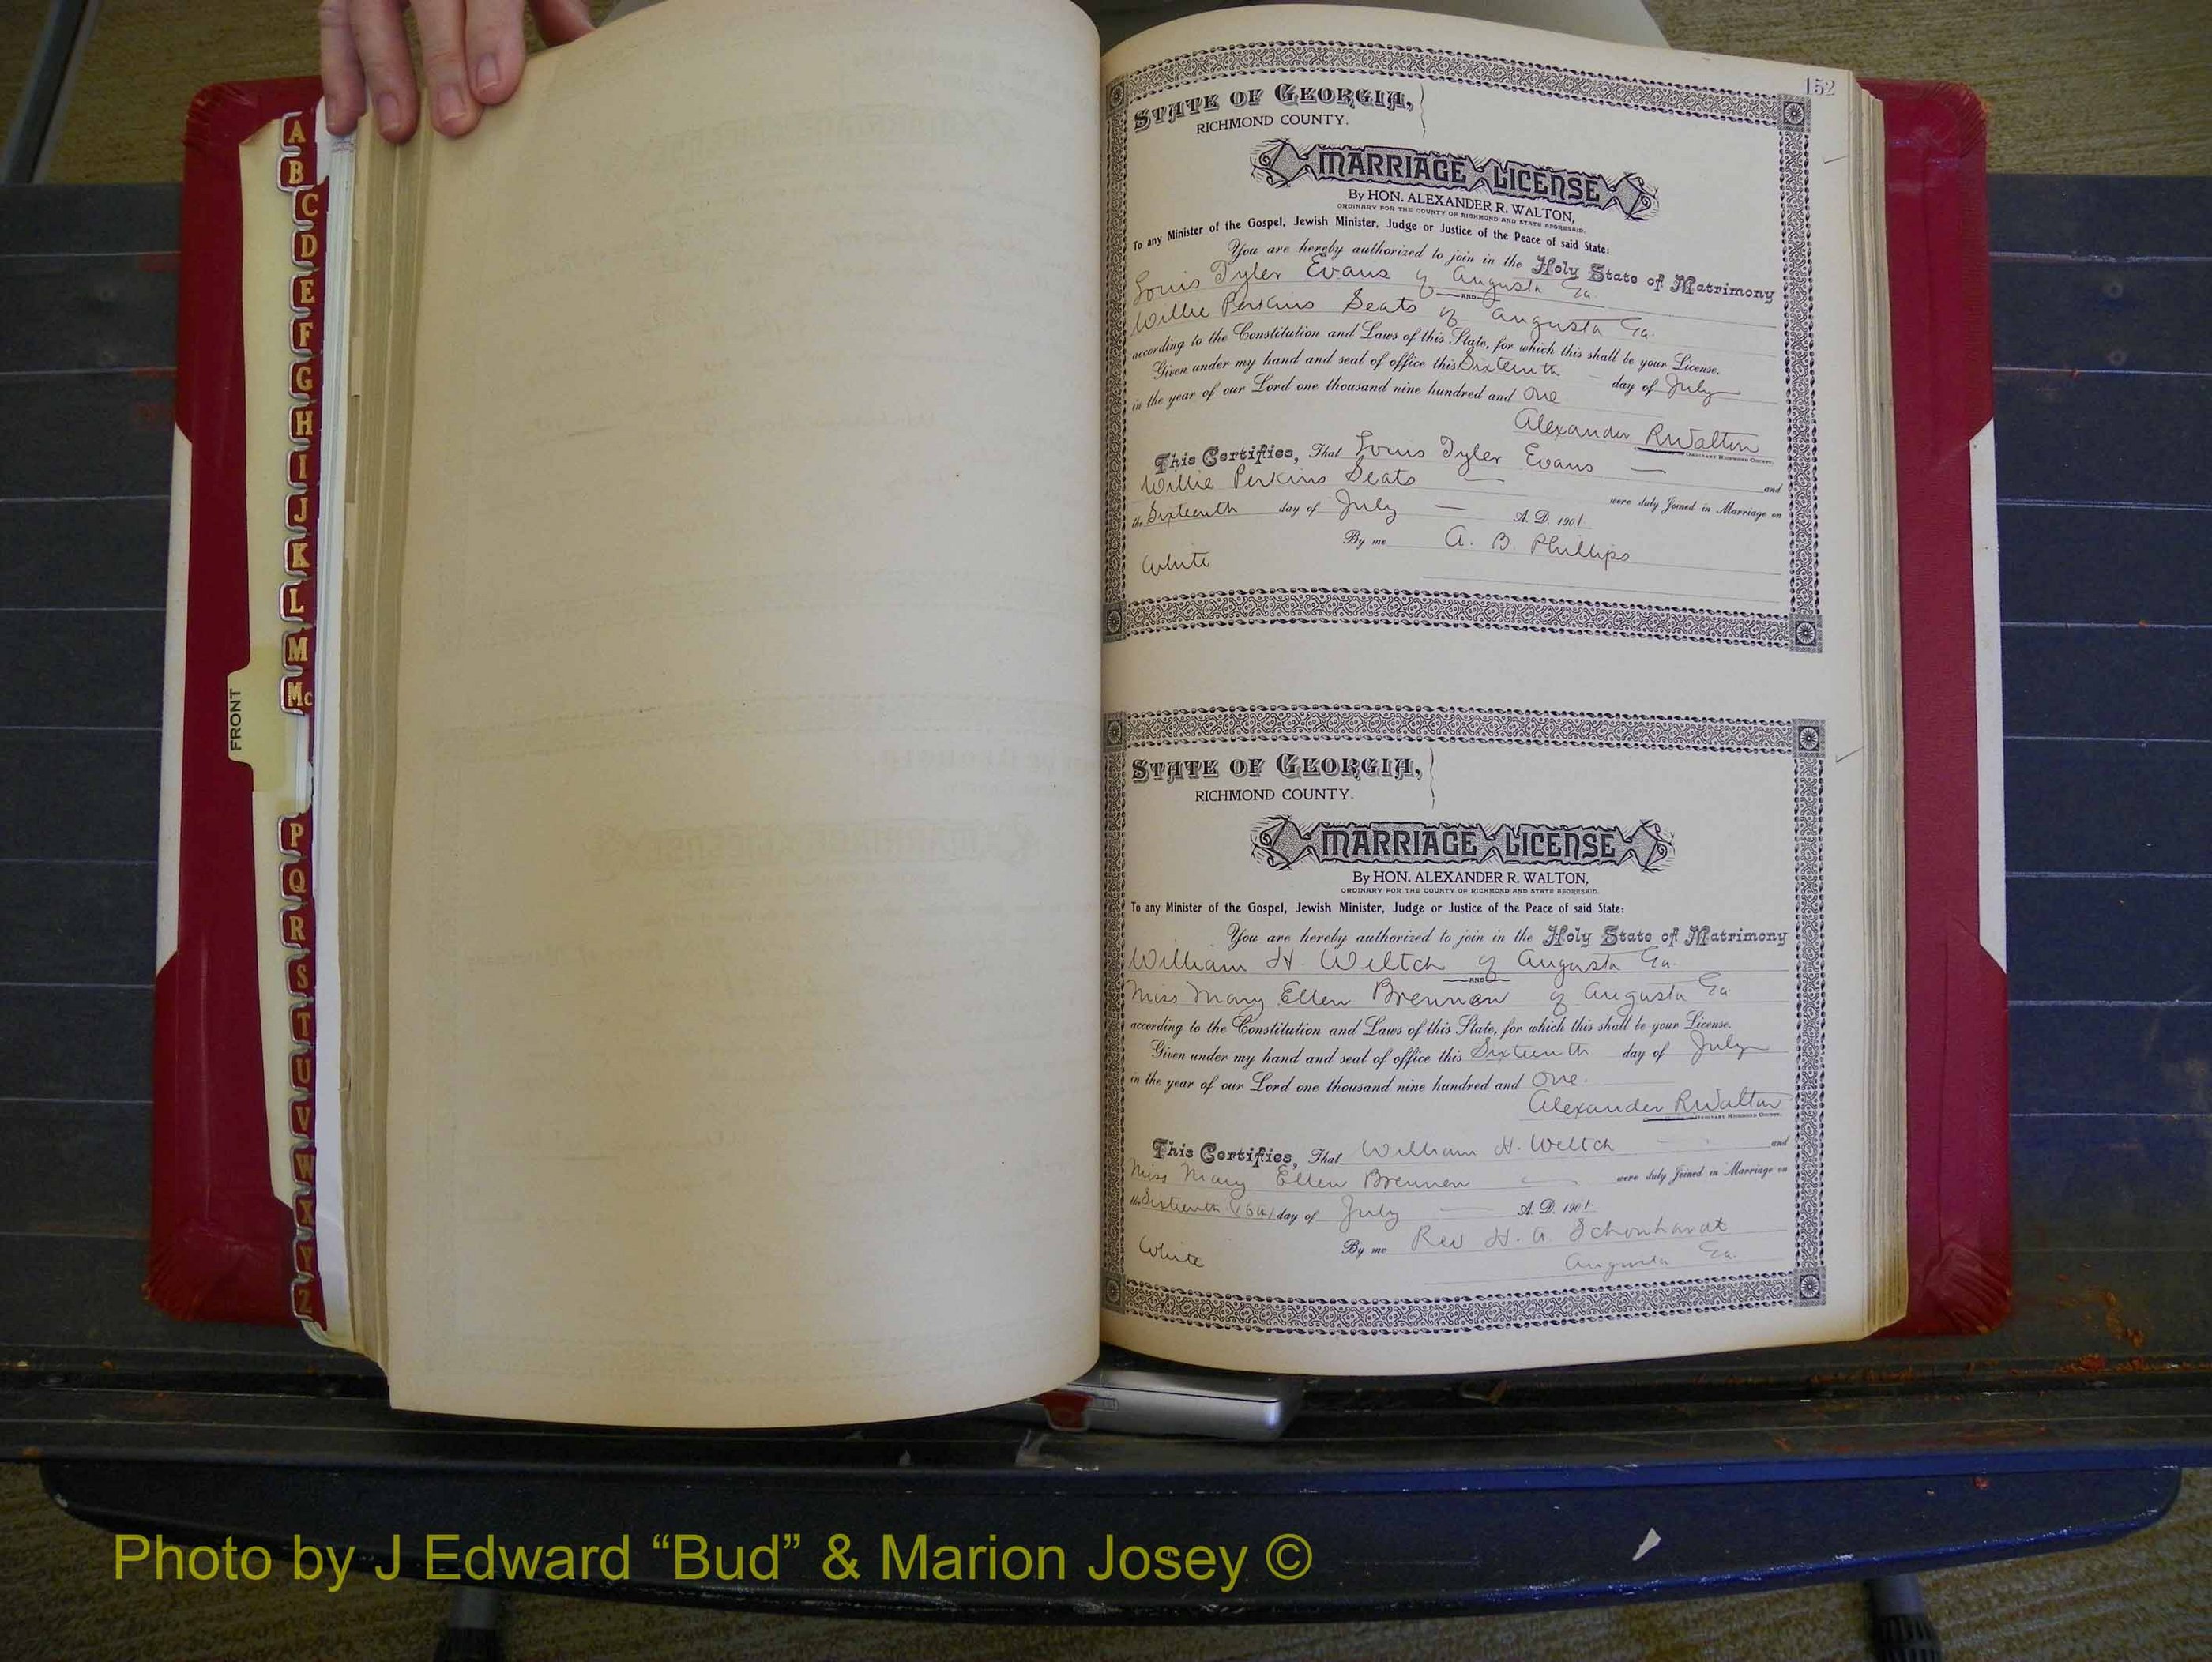 A
B
C
D
E
F
G
H
I
J
K
L
M
Mc
FRONT
P
Q
R
S
T
U
V
W
X
Y
Z
152
STATE OF GEORGIA,
RICHMOND COUNTY.
MARRIAGE LICENSE
By HON. ALEXANDER R. WALTON,
ORDINARY FOR THE COUNTY OF RICHMOND AND STATE AFORESAID.
To any Minister of the Gospel, Jewish Minister, Judge or Justice of the Peace of said State:
You are hereby authorized to join in the Holy State of Matrimony
Louis Tyler Evans of Augusta Ga.
AND
Willie Perkins Seats of Augusta Ga.
according to the Constitution and Laws of this State, for which this shall be your License.
Given under my hand and seal of office this Sixteenth day of July
in the year of our Lord one thousand nine hundred and One
Alexander R Walton
ORDINARY RICHMOND COUNTY.
This Certifies, That Louis Tyler Evans — and
Willie Perkins Seats — were duly Joined in Marriage on
the Sixteenth day of July — A. D. 1901.
By me A. B. Phillips
White
STATE OF GEORGIA,
RICHMOND COUNTY.
MARRIAGE LICENSE
By HON. ALEXANDER R. WALTON,
ORDINARY FOR THE COUNTY OF RICHMOND AND STATE AFORESAID.
To any Minister of the Gospel, Jewish Minister, Judge or Justice of the Peace of said State:
You are hereby authorized to join in the Holy State of Matrimony
William H. Weltch of Augusta Ga.
AND
Miss Mary Ellen Brennan of Augusta Ga
according to the Constitution and Laws of this State, for which this shall be your License.
Given under my hand and seal of office this Sixteenth day of July
in the year of our Lord one thousand nine hundred and One.
Alexander R Walton
ORDINARY RICHMOND COUNTY.
This Certifies, That William H. Weltch — and
Miss Mary Ellen Brennen — were duly Joined in Marriage on
the Sixteenth day of July — A. D. 1901.
By me Rev H. A Schonhardt
White
Augusta Ga.
Photo by J Edward “Bud” & Marion Josey ©